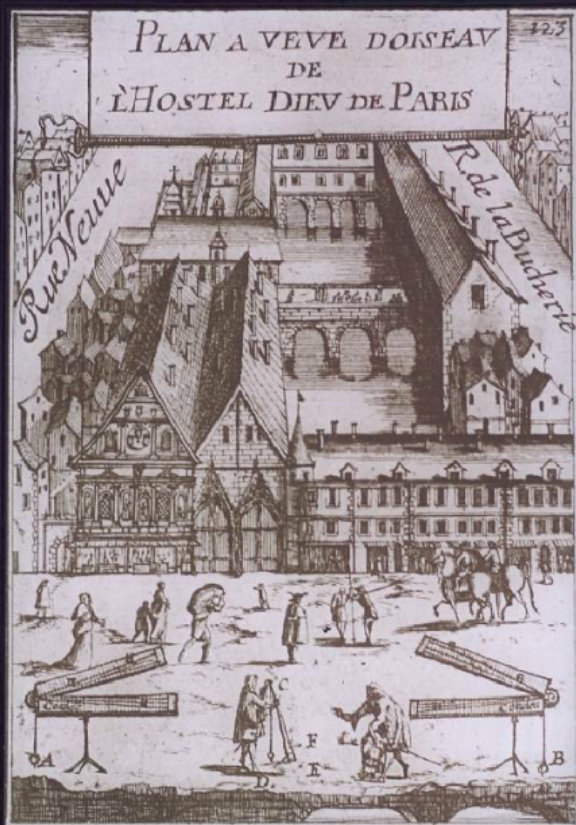 223
PLAN A VEVE DOISEAV
DE
L'HOSTEL DIEV DE PARIS
Rue Neuue
R. de la Bucherie
C
A
F
E
D
B